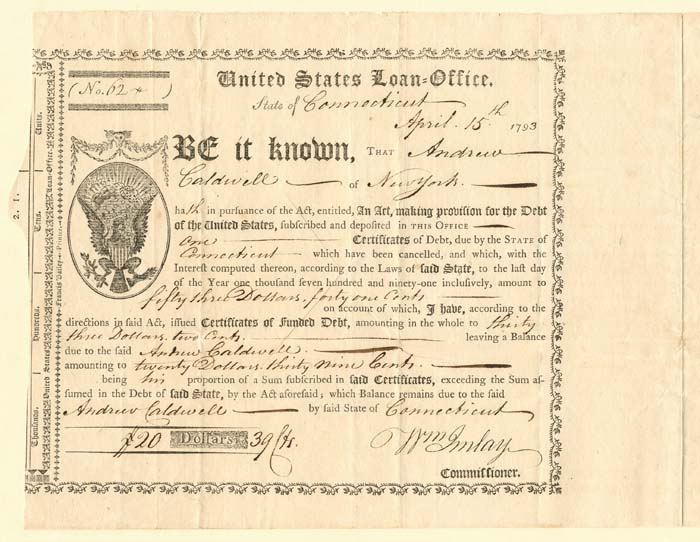 United States Loan-Office.
(No. 62 )
State of Connecticut
April 15th 1793
BE it known, THAT Andrew
Caldwell of New York
hath in pursuance of the Act, entitled, An Act, making provision for the Debt
of the United States, subscribed and deposited in THIS OFFICE
one Certificates of Debt, due by the STATE of
Connecticut which have been cancelled, and which, with the
Interest computed thereon, according to the Laws of said State, to the last day
of the Year one thousand seven hundred and ninety-one inclusively, amount to
fifty three Dollars, forty one Cents
on account of which, I have, according to the
directions in said Act, issued Certificates of Funded Debt, amounting in the whole to thirty
three Dollars, two Cents. leaving a Balance
due to the said Andrew Caldwell
amounting to twenty Dollars, thirty nine Cents
being his proportion of a Sum subscribed in said Certificates, exceeding the Sum as-
sumed in the Debt of said State, by the Act aforesaid; which Balance remains due to the said
Andrew Caldwell by said State of Connecticut
20 Dollars 39 Cts.
Wm Imlay
Commissioner.
Thousands. Hundreds. Tens. Units.
2. 1.
United States Loan-Office.
Francis Bailey Printer.